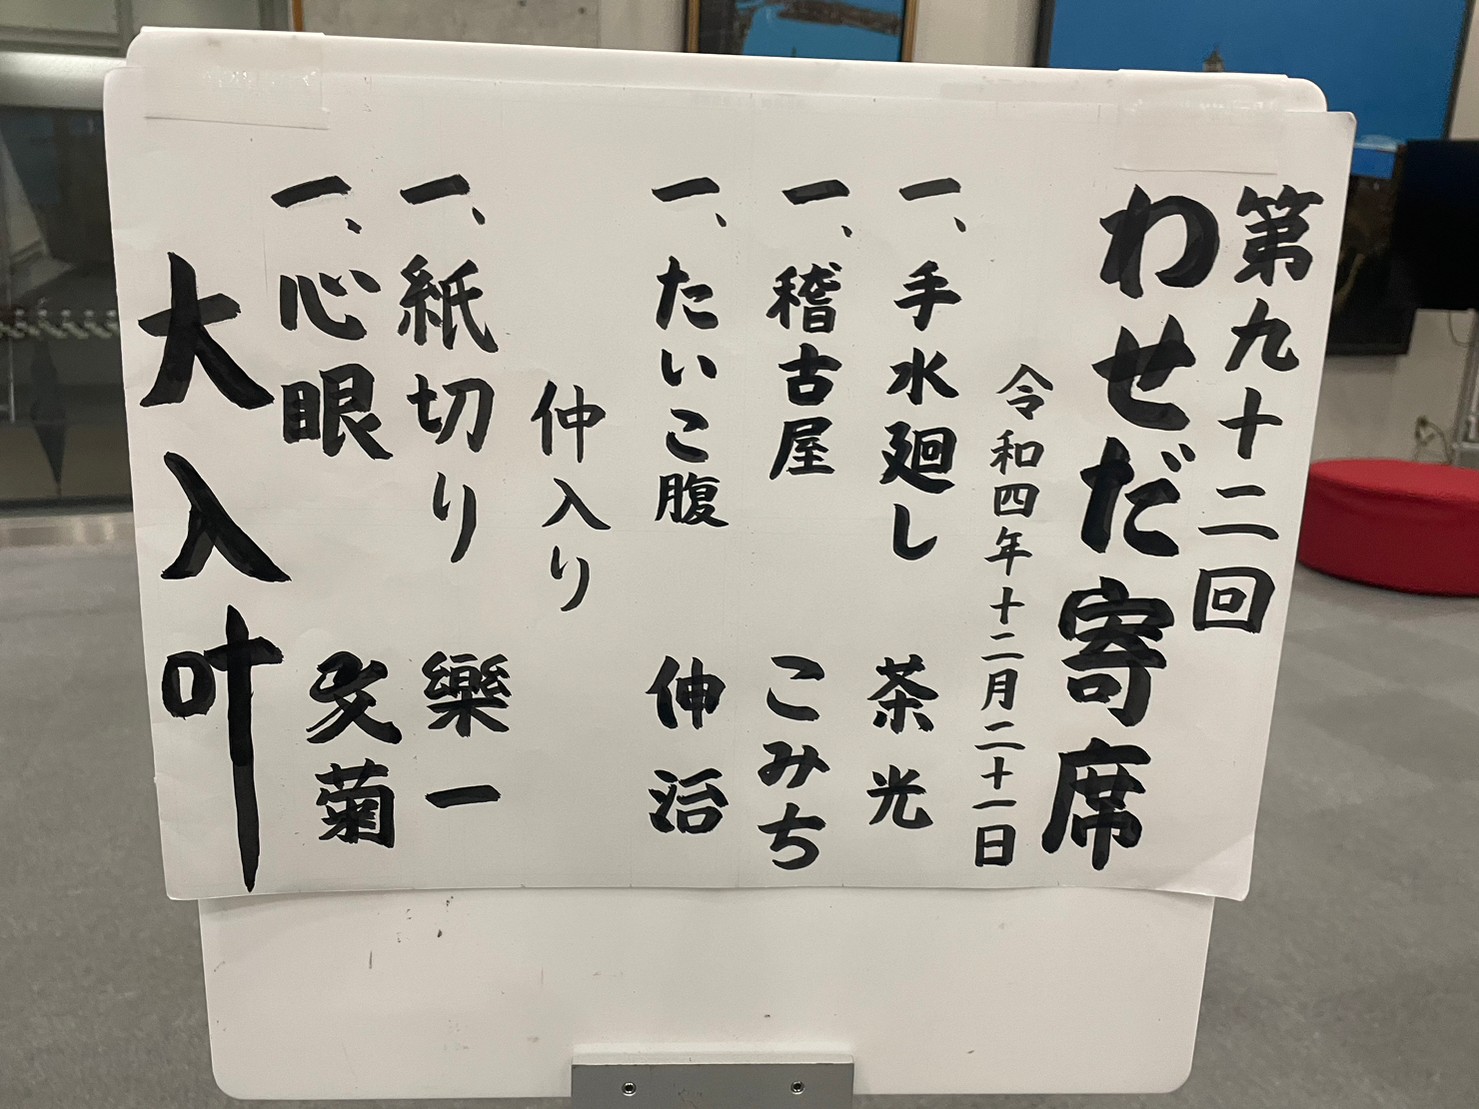 第九十二回
わせだ寄席
令和四年十二月二十一日
一、手水廻し 茶光
一、稽古屋 こみち
一、たいこ腹 伸治
仲入り
一、紙切り 樂一
一、心眼 文菊
大入叶